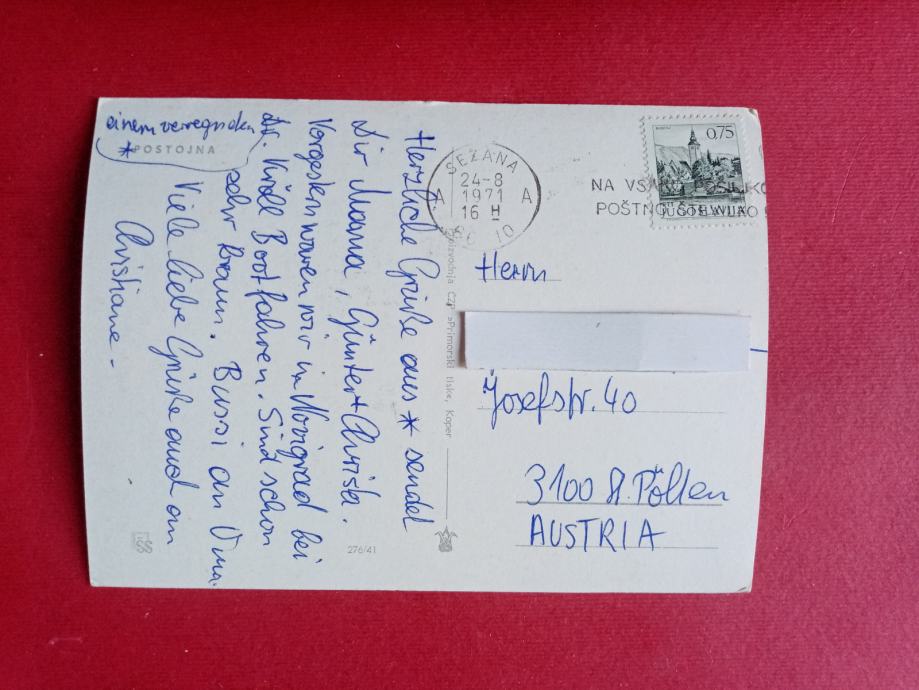 einem verregneten
* POSTOJNA
Herzliche Grüße aus * sendet
Dir Mama, Günter + Christa.
Vorgestern waren wir in Novigrad bei
Dr. Boot fahren. Sind schon
sehr braun. Bussi an Oma.
Viele liebe Grüße auch an
Christiane -
276/41
Proizvodnja ČZP »Primorski tisk«, Koper
SEŽANA
24-8
A 1971 A
16 H
0,75
NA VSAKO POŠILJKO
POŠTNO ŠTEVILKO
JUGOSLAVIJA
Herrn
Josefstr. 40
3100 St. Pölten
AUSTRIA